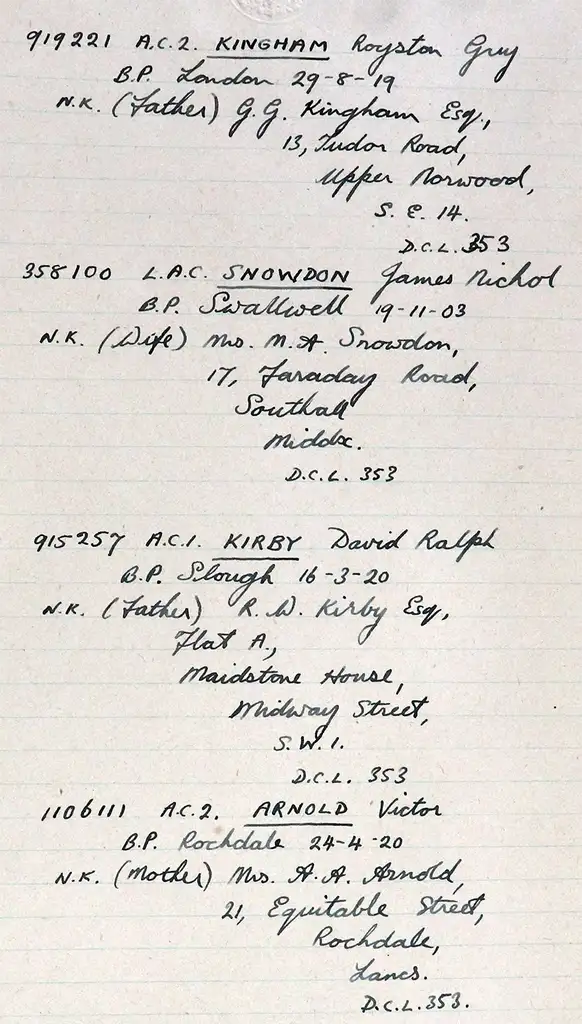 919221 A.C.2. KINGHAM Royston Guy
B.P. London 29-8-19
N.K. (Father) G.G. Kingham Esq.,
13, Tudor Road,
Upper Norwood,
S. E. 14.
D.C.L. 353
358100 L.A.C. SNOWDON James Nichol
B.P. Swallwell 19-11-03
N.K. (Wife) Mrs. M.A. Snowdon,
17, Faraday Road,
Southall
Middx.
D.C.L. 353
915257 A.C.1. KIRBY David Ralph
B.P. Slough 16-3-20
N.K. (Father) R.W. Kirby Esq,
Flat A.,
Maidstone House,
Midway Street,
S.W.1.
D.C.L. 353
1106111 A.C.2. ARNOLD Victor
B.P. Rochdale 24-4-20
N.K. (Mother) Mrs. A.A. Arnold,
21, Equitable Street,
Rochdale,
Lancs.
D.C.L. 353.